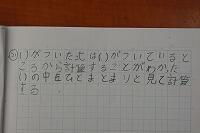 ③()がついた式は()がついていると
ころから計算することがわかった
()の中をひとまとまりと見て計算
する